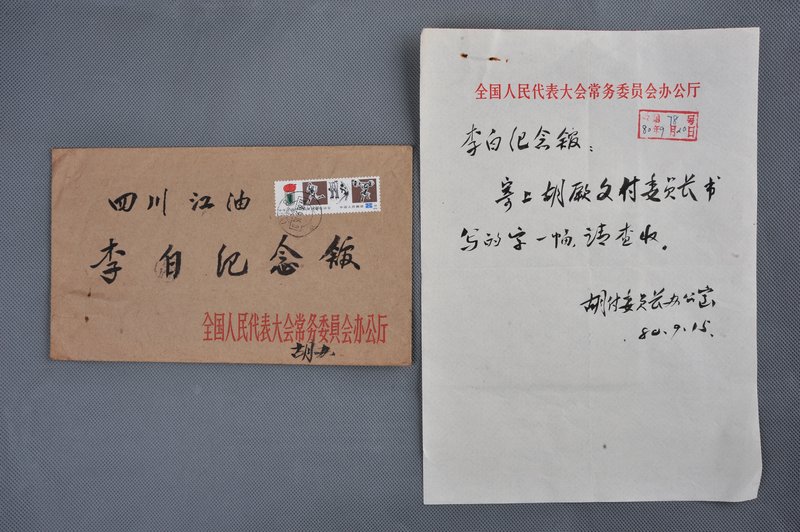 四川 江油
李白纪念馆
全国人民代表大会常务委员会办公厅
胡办
全国人民代表大会常务委员会办公厅
78号
80年9月20日
李白纪念馆：
寄上胡厥文付委员长书
写的字一幅，请查收。
胡付委员长办公室
80.9.15.